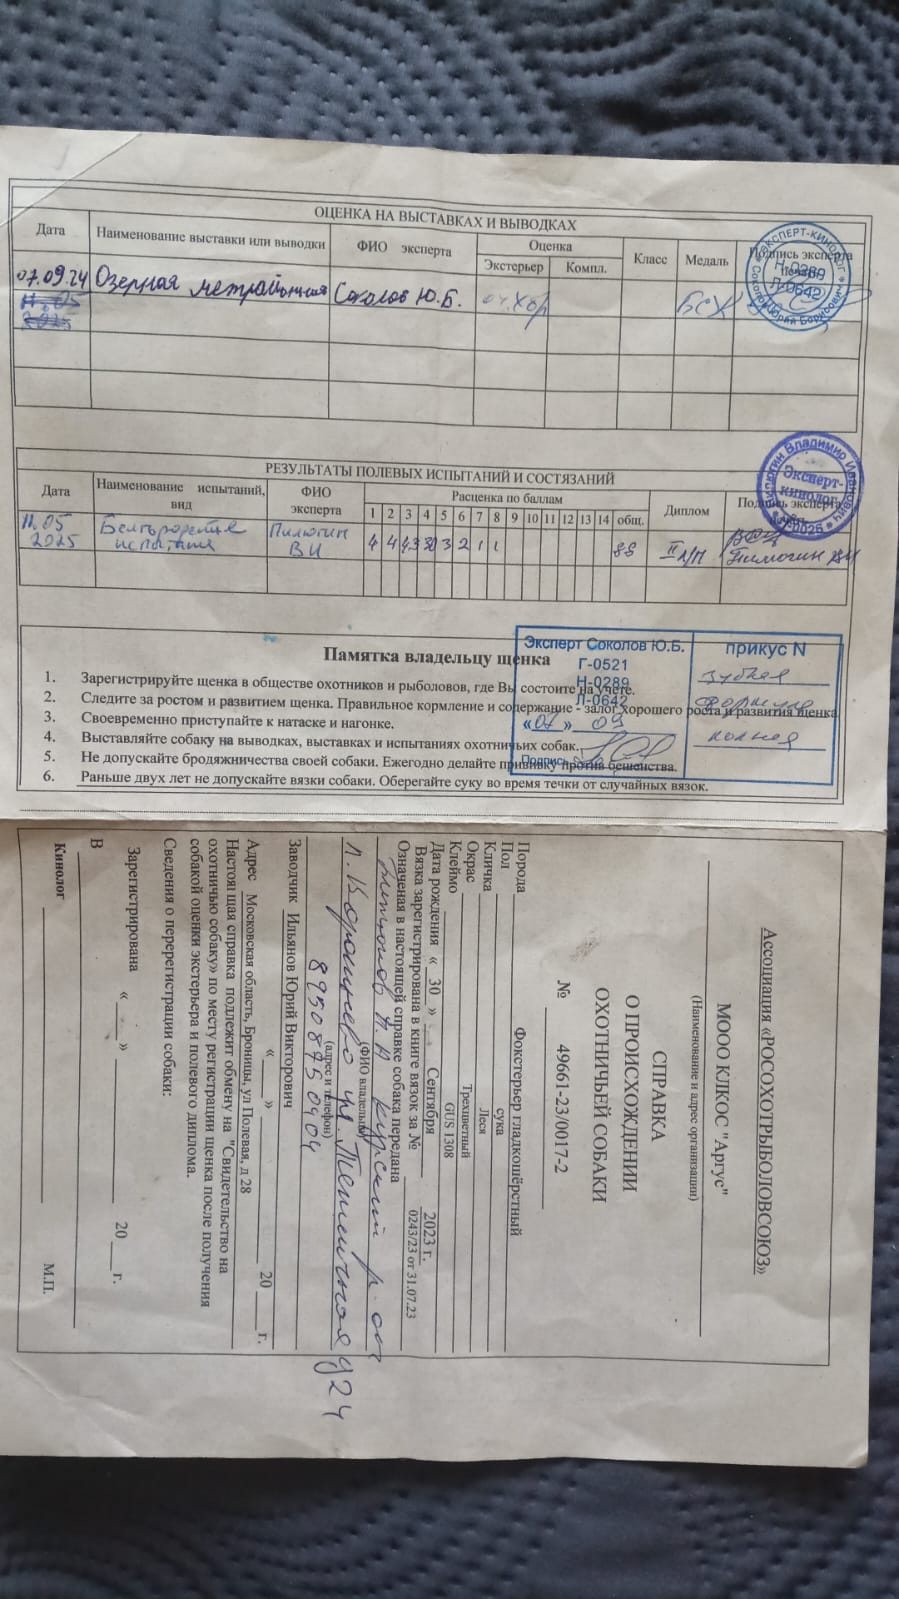 ОЦЕНКА НА ВЫСТАВКАХ И ВЫВОДКАХ
Дата Наименование выставки или выводки ФИО эксперта Оценка Класс Медаль Подпись эксперта
Экстерьер Компл.
07.09.24 Озерная Соколов Ю.Б. оч. хор БСЖ
11.05
2025
ЭКСПЕРТ-КИНОЛОГ
Н-0289
Л-0642
Соколов Юрий Борисович
РЕЗУЛЬТАТЫ ПОЛЕВЫХ ИСПЫТАНИЙ И СОСТЯЗАНИЙ
Дата Наименование испытаний, вид ФИО эксперта Расценка по баллам Диплом Подпись эксперта
1 2 3 4 5 6 7 8 9 10 11 12 13 14 общ.
11.05 2025 испытания Пилюгин В И 4 4 3 2 1 1 88 II Пилюгин ВИ
Пилюгин Владимир Иванович
Эксперт-кинолог
Памятка владельцу щенка
1. Зарегистрируйте щенка в обществе охотников и рыболовов, где Вы состоите на учете.
2. Следите за ростом и развитием щенка. Правильное кормление и содержание - залог хорошего роста и развития щенка
3. Своевременно приступайте к натаске и нагонке.
4. Выставляйте собаку на выводках, выставках и испытаниях охотничьих собак.
5. Не допускайте бродяжничества своей собаки. Ежегодно делайте прививку против бешенства.
6. Раньше двух лет не допускайте вязки собаки. Оберегайте суку во время течки от случайных вязок.
Эксперт Соколов Ю.Б.
Г-0521
Н-0289
Л-0642
«07» 09
Подпись
прикус N
зубная
формула
полная
Ассоциация «РОСОХОТРЫБОЛОВСОЮЗ»
МООО КЛКОС "Аргус"
(Наименование и адрес организации)
СПРАВКА
О ПРОИСХОЖДЕНИИ
ОХОТНИЧЬЕЙ СОБАКИ
№ 49661-23/0017-2
Порода Фокстерьер гладкошёрстный
Пол сука
Кличка Леся
Окрас Трехцветный
Клеймо GUS 1308
Дата рождения « 30 » Сентября 2023 г.
Вязка зарегистрирована в книге вязок за № 0243/23 от 31.07.23
Означеная в настоящей справке собака передана
курский р-он
(ФИО владельца)
п. Ворошнево ул. Пшеничная д 24
(адрес и телефон)
89508750404
Заводчик Ильянов Юрий Викторович
« » 20 г.
Адрес Московская область, Бронницы, ул Полевая, д 28
Настоящая справка подлежит обмену на "Свидетельство на
охотничью собаку» по месту регистрации щенка после получения
собакой оценки экстерьера и полевого диплома.
Сведения о перерегистрации собаки:
Зарегистрирована « » 20 г.
В
Кинолог М.П.